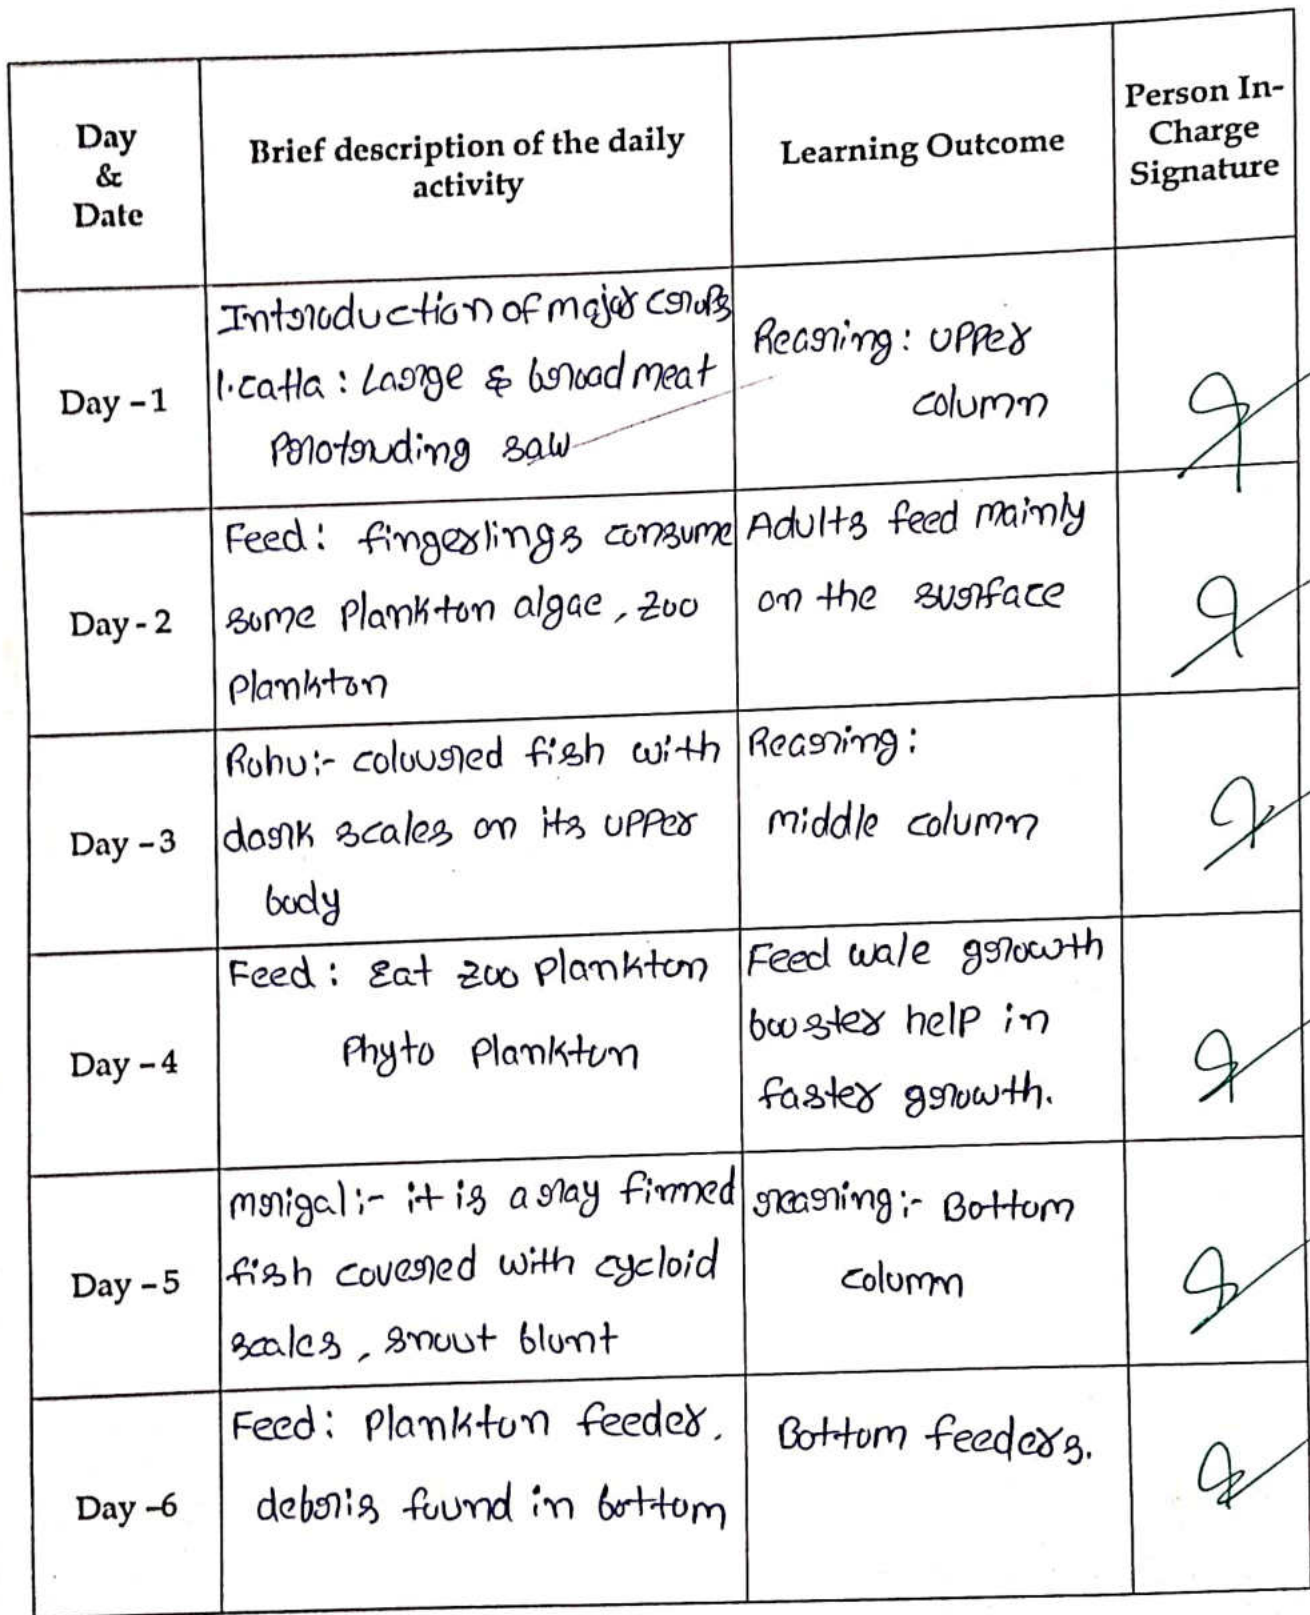 Day
&
Date
Brief description of the daily
activity
Learning Outcome
Person In-
Charge
Signature
Day - 1
Introduction of major carps
1. Catla : Large & broad meat
Protruding saw
Rearing : upper
column
Day - 2
Feed : fingerlings consume
some Plankton algae, zoo
Plankton
Adults feed mainly
on the surface
Day - 3
Rohu :- coloured fish with
dark scales on its upper
body
Rearing :
middle column
Day - 4
Feed : Eat zoo Plankton
Phyto Plankton
Feed growth
booster help in
faster growth.
Day - 5
mrigal :- it is a ray finned
fish covered with cycloid
scales, snout blunt
rearing :- Bottom
column
Day -6
Feed : Plankton feeder,
debris found in bottom
Bottom feeders.